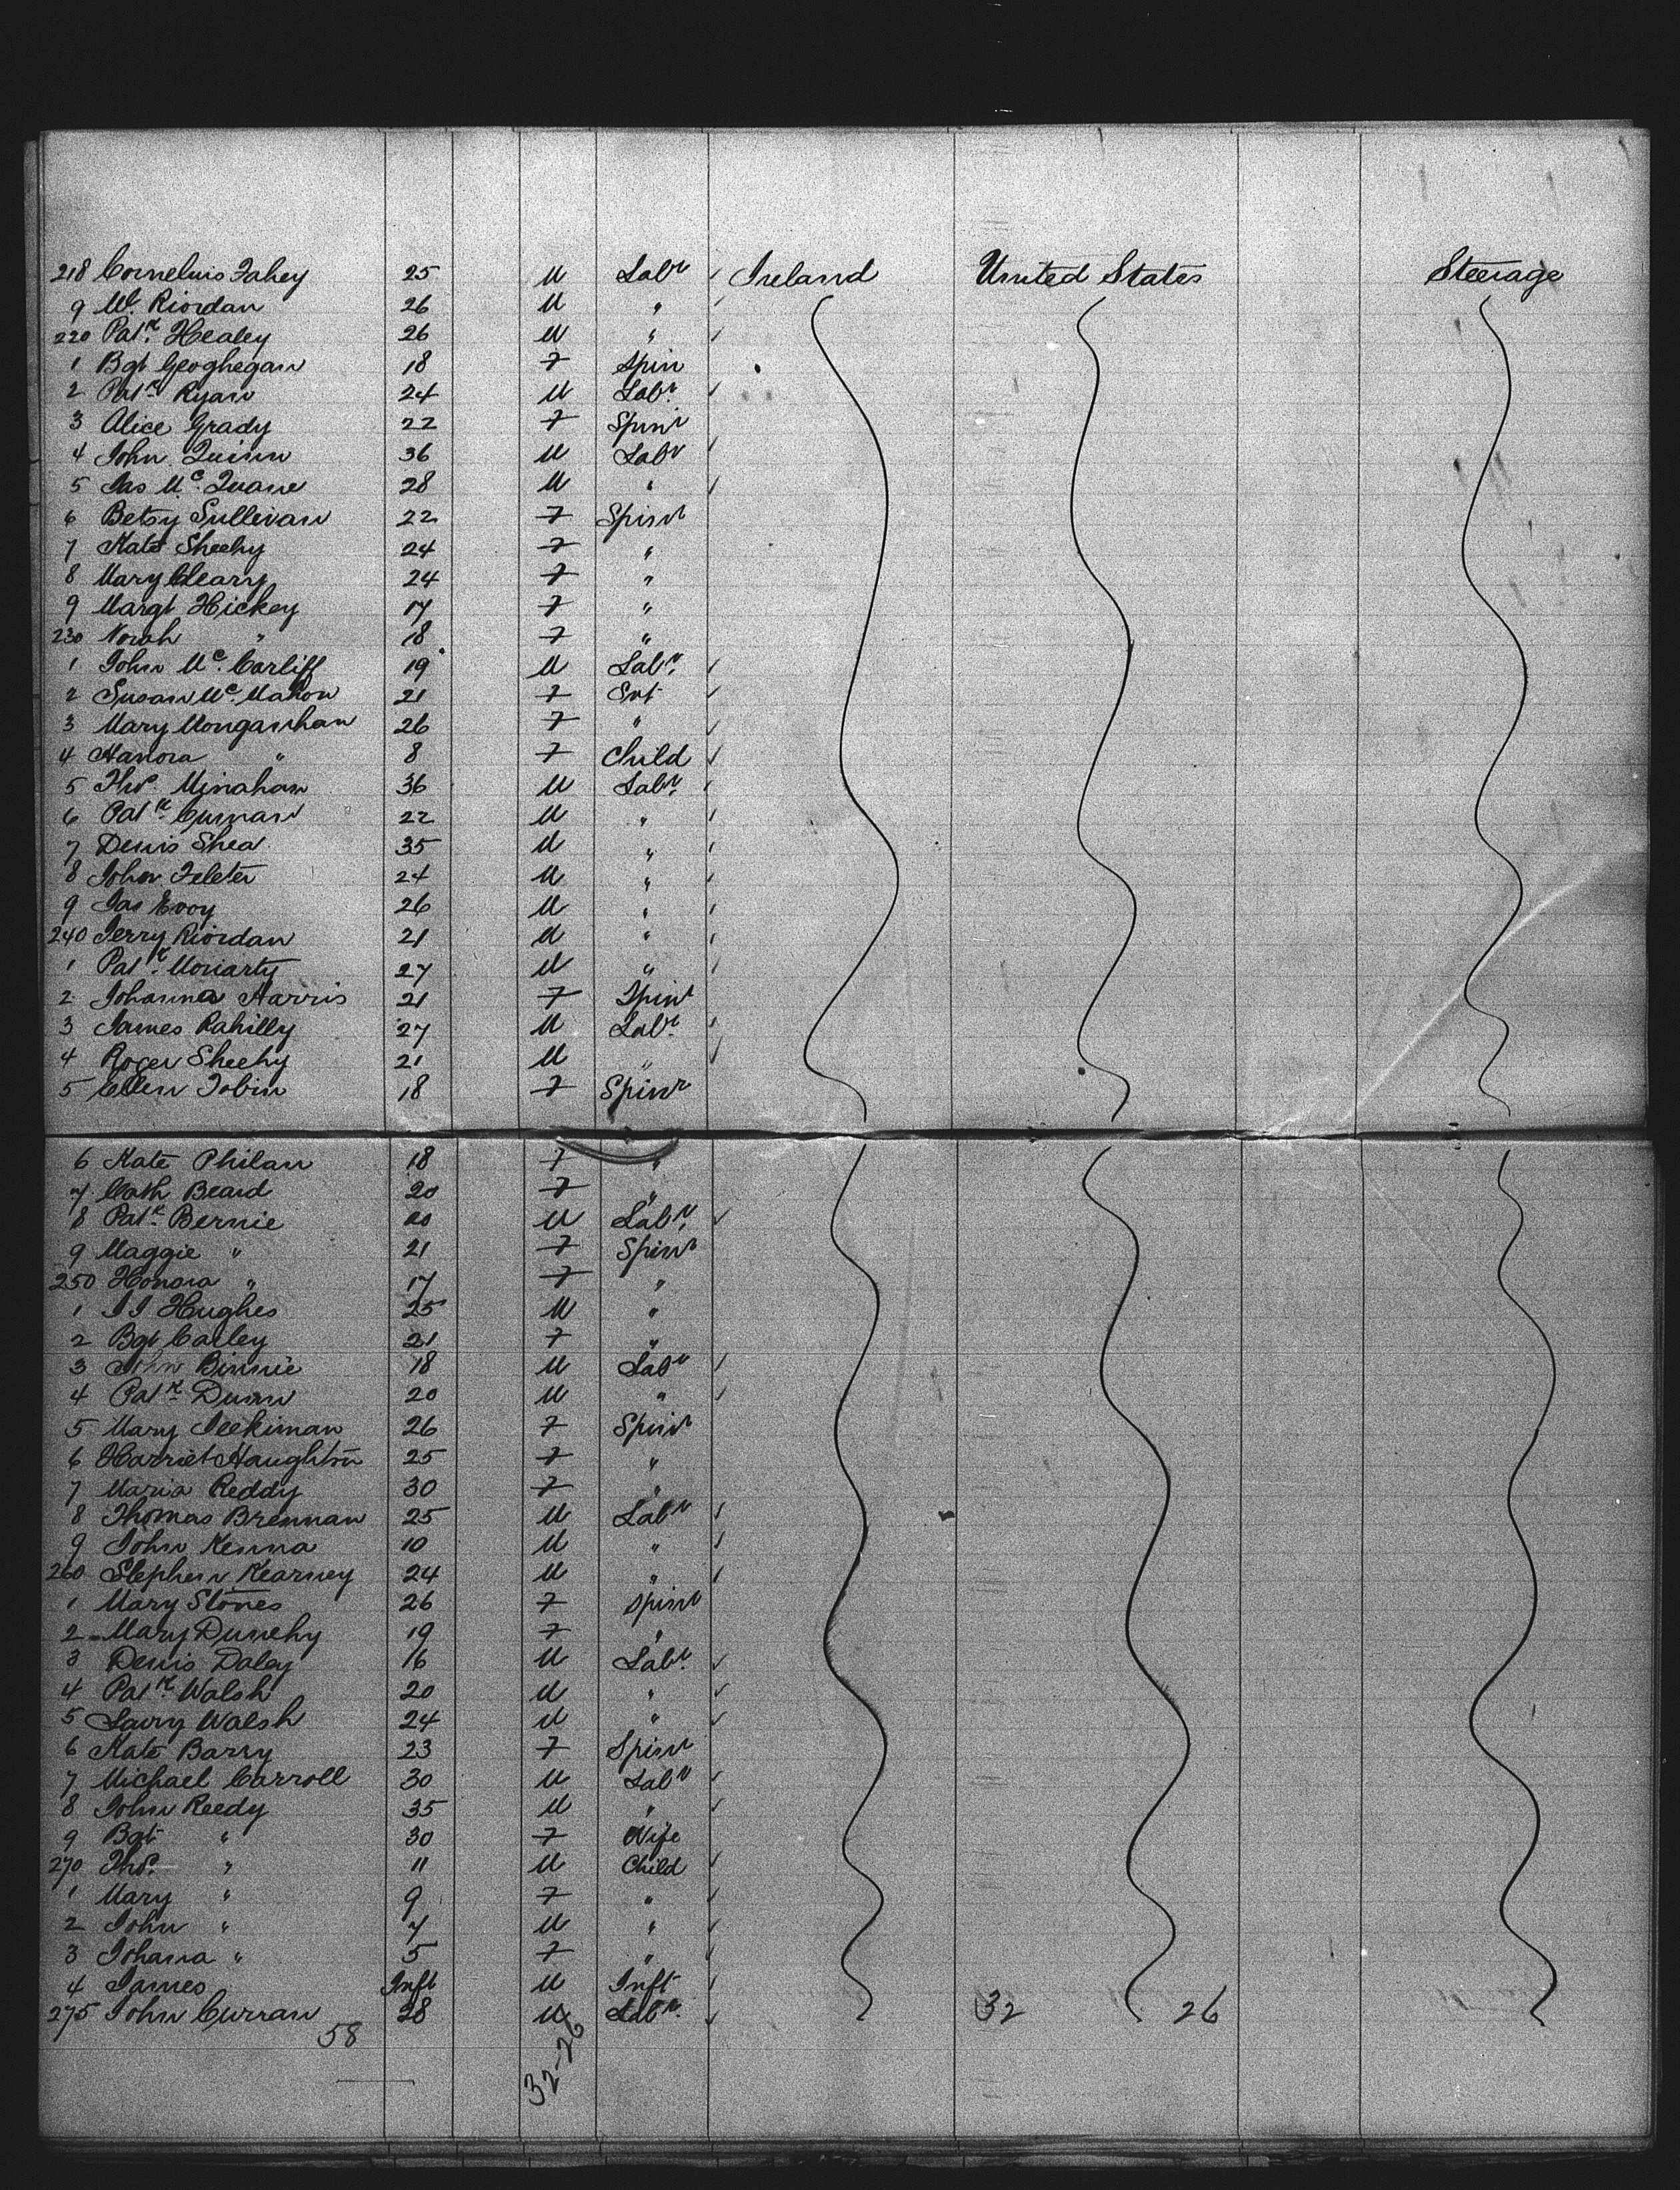 218 Cornelius Fahey 25 M Labr Ireland United States Steerage
9 M. Riordan 26 M "
220 Patk. Healey 26 M "
1 Bgt Geoghegan 18 F Spin
2 Patk Ryan 24 M Labr.
3 Alice Grady 22 F Spinr
4 John Quinn 36 M Labr
5 Jas Mc. Quane 28 M "
6 Betsy Sullivan 22 F Spinr
7 Kate Sheehy 24 F "
8 Mary Cleary 24 F "
9 Margt Hickey 17 F "
230 Norah " 18 F "
1 John Mc. Carliff 19 M Labr.
2 Susan Mc. Mahon 21 F Svt
3 Mary Monganhan 26 F "
4 Hanora " 8 F Child
5 Thos. Minahan 36 M Labr.
6 Patk. 22 M "
7 Denis Shea 35 M "
8 John 24 M "
9 Jas Evoy 26 M "
240 Jerry Riordan 21 M "
1 Patk. Moriarty 27 M "
2 Johanna Harris 21 F Spinr
3 James Rahilly 27 M Labr.
4 Roger Sheehy 21 M "
5 Ellen Tobin 18 F Spinr
6 Kate Philan 18 F "
7 Cath Beard 20 F "
8 Patk. Bernie 20 M Labr.
9 Maggie " 21 F Spinr
250 Honora " 17 F "
1 J J Hughes 25 M "
2 Bgt Carley 21 F "
3 John Binnie 18 M Labr
4 Patk. Dunn 20 M "
5 Mary 26 F Spinr
6 Harriet Haughton 25 F "
7 Maria Reddy 30 F "
8 Thomas Brennan 25 M Labr
9 John Kenna 10 M "
260 Stephen Kearney 24 M "
1 Mary Stones 26 F Spinr
2 Mary Dunehy 19 F "
3 Denis Daley 16 M Labr.
4 Patk. Walsh 20 M "
5 Lawry Walsh 24 M "
6 Kate Barry 23 F Spinr
7 Michael Carroll 30 M Labr
8 John Reedy 35 M "
9 Bgt " 30 F Wife
270 Thos. " 11 M Child
1 Mary " 9 F "
2 John " 7 M "
3 Johana " 5 F "
4 James Inft M Inft
275 John Curran 28 M Labr. 32 26
58
32-26